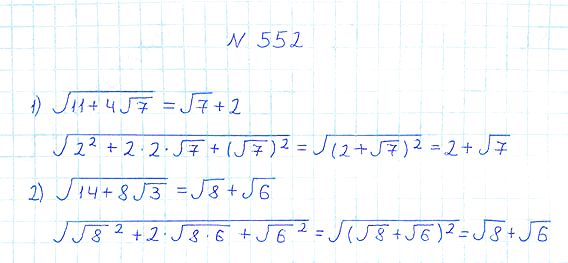 N 552
1) √(11 + 4√7) = √7 + 2
√(2² + 2·2·√7 + (√7)²) = √((2 + √7)²) = 2 + √7
2) √(14 + 8√3) = √8 + √6
√(√8² + 2·√(8·6) + √6²) = √((√8 + √6)²) = √8 + √6